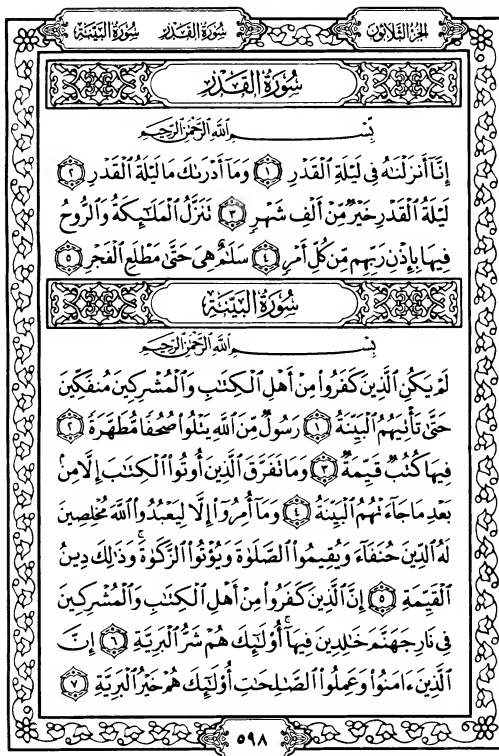 الجزء الثلاثون سورة القدر سورة البينة
سُورَةُ القَدۡرِ
بِسۡمِ ٱللَّهِ ٱلرَّحۡمَٰنِ ٱلرَّحِيمِ
إِنَّآ أَنزَلۡنَٰهُ فِي لَيۡلَةِ ٱلۡقَدۡرِ ١ وَمَآ أَدۡرَىٰكَ مَا لَيۡلَةُ ٱلۡقَدۡرِ ٢
لَيۡلَةُ ٱلۡقَدۡرِ خَيۡرٞ مِّنۡ أَلۡفِ شَهۡرٖ ٣ تَنَزَّلُ ٱلۡمَلَٰٓئِكَةُ وَٱلرُّوحُ
فِيهَا بِإِذۡنِ رَبِّهِم مِّن كُلِّ أَمۡرٖ ٤ سَلَٰمٌ هِيَ حَتَّىٰ مَطۡلَعِ ٱلۡفَجۡرِ ٥
سُورَةُ البَيِّنَةِ
بِسۡمِ ٱللَّهِ ٱلرَّحۡمَٰنِ ٱلرَّحِيمِ
لَمۡ يَكُنِ ٱلَّذِينَ كَفَرُواْ مِنۡ أَهۡلِ ٱلۡكِتَٰبِ وَٱلۡمُشۡرِكِينَ مُنفَكِّينَ
حَتَّىٰ تَأۡتِيَهُمُ ٱلۡبَيِّنَةُ ١ رَسُولٞ مِّنَ ٱللَّهِ يَتۡلُواْ صُحُفٗا مُّطَهَّرَةٗ ٢
فِيهَا كُتُبٞ قَيِّمَةٞ ٣ وَمَا تَفَرَّقَ ٱلَّذِينَ أُوتُواْ ٱلۡكِتَٰبَ إِلَّا مِنۢ
بَعۡدِ مَا جَآءَتۡهُمُ ٱلۡبَيِّنَةُ ٤ وَمَآ أُمِرُوٓاْ إِلَّا لِيَعۡبُدُواْ ٱللَّهَ مُخۡلِصِينَ
لَهُ ٱلدِّينَ حُنَفَآءَ وَيُقِيمُواْ ٱلصَّلَوٰةَ وَيُؤۡتُواْ ٱلزَّكَوٰةَۚ وَذَٰلِكَ دِينُ
ٱلۡقَيِّمَةِ ٥ إِنَّ ٱلَّذِينَ كَفَرُواْ مِنۡ أَهۡلِ ٱلۡكِتَٰبِ وَٱلۡمُشۡرِكِينَ
فِي نَارِ جَهَنَّمَ خَٰلِدِينَ فِيهَآۚ أُوْلَٰٓئِكَ هُمۡ شَرُّ ٱلۡبَرِيَّةِ ٦ إِنَّ
ٱلَّذِينَ ءَامَنُواْ وَعَمِلُواْ ٱلصَّٰلِحَٰتِ أُوْلَٰٓئِكَ هُمۡ خَيۡرُ ٱلۡبَرِيَّةِ ٧
٥٩٨